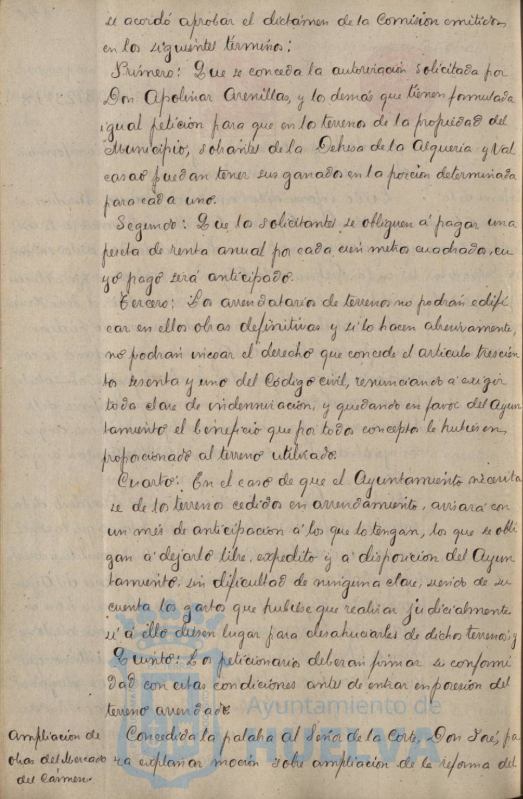 se acordó aprobar el dictamen de la Comisión emitido,
en los siguientes términos:
Primero: Que se conceda la autorización solicitada por
Don Apolinar Arenillas, y los demás que tienen formulada
igual petición para que en los terrenos de la propiedad del
Municipio, sobrantes de la Dehesa de la Alquería y Val
casao puedan tener sus ganados en la porción determinada
para cada uno.
Segundo: Que los solicitantes se obliguen á pagar una
peseta de renta anual por cada cien metros cuadrados, cu
yo pago será anticipado.
Tercero: Los arrendatarios de terrenos no podrán edifi
car en ellos obras definitivas y si lo hacen abusivamente,
no podrán invocar el derecho que concede el artículo trescien
to sesenta y uno del Código civil, renunciando á exigir
toda clase de indemnización, y quedando en favor del Ayun
tamiento el beneficio que por todos conceptos le hubiesen
proporcionado al terreno utilizado.
Cuarto: En el caso de que el Ayuntamiento necesita
se de los terrenos cedidos en arrendamiento, avisará con
un mes de anticipación á los que lo tengan, los que se obli
gan á dejarlo libre, expedito y á disposición del Ayun
tamiento, sin dificultad de ninguna clase, siendo de su
cuenta los gastos que hubiese que realizar judicialmente
si á ello diesen lugar para desahuciarles de dichos terrenos; y
Quinto: Los peticionarios deberán firmar su conformi
dad con estas condiciones antes de entrar en posesión del
terreno arrendado.
Ampliación de
obras del Mercado
del Cármen.
Concedida la palabra al Señor de la Corte, Don José, pa
ra explanar moción sobre ampliación de la reforma del
Ayuntamiento de
HUELVA